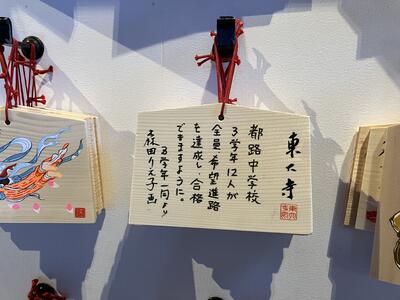 東大寺
都路中学校
3学年12人が
全員、希望進路
を達成し、合格
できますように。
3学年一同より
森田りえ子画